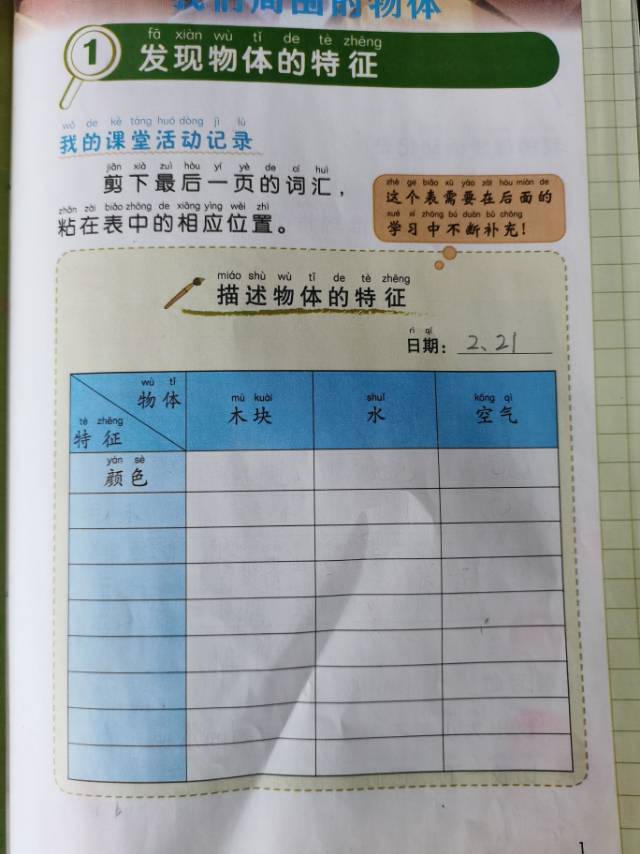 我们周围的物体
fā xiàn wù tǐ de tè zhēng
1 发现物体的特征
wǒ de kè táng huó dòng jì lù
我的课堂活动记录
jiǎn xià zuì hòu yí yè de cí huì
剪下最后一页的词汇，
zhān zài biǎo zhōng de xiāng yìng wèi zhì
粘在表中的相应位置。
zhè ge biǎo xū yào zài hòu miàn de
这个表需要在后面的
xué xí zhōng bú duàn bǔ chōng
学习中不断补充！
miáo shù wù tǐ de tè zhēng
描述物体的特征
rì qī
日期：2、21
wù tǐ
物体
tè zhēng
特征
mù kuài shuǐ kōng qì
木块 水 空气
yán sè
颜色
1